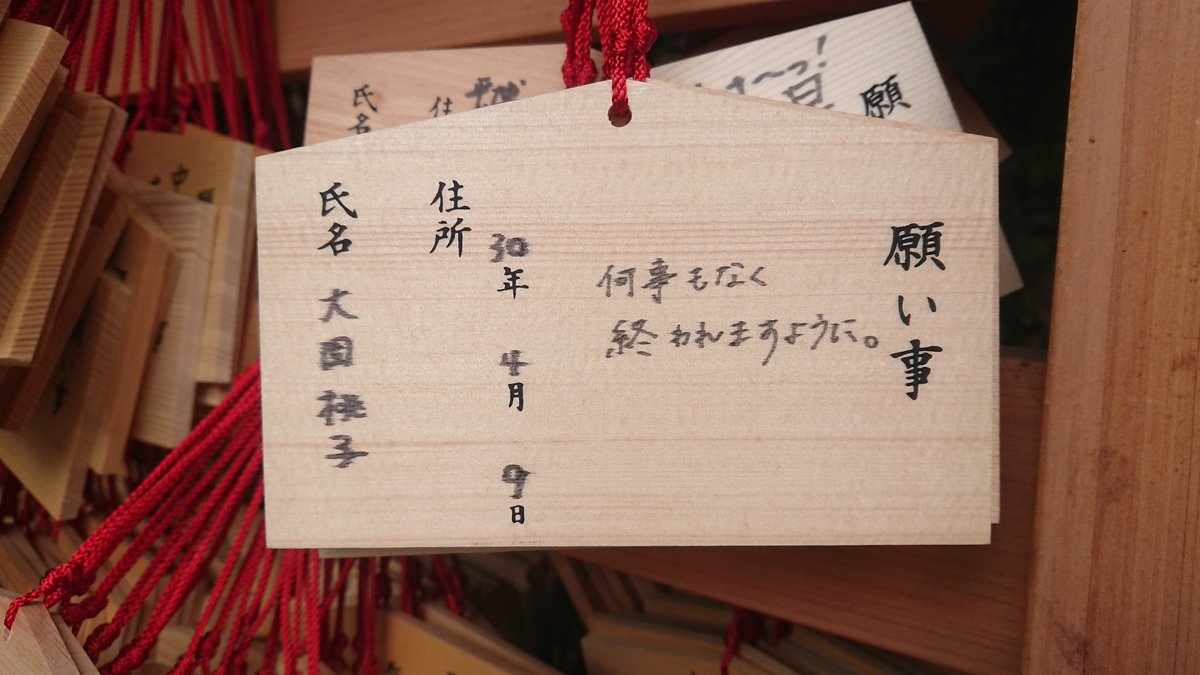 願い事
何事もなく
終われますように。
30年 4月 9日
住所
氏名 大園桃子
願
氏名
住